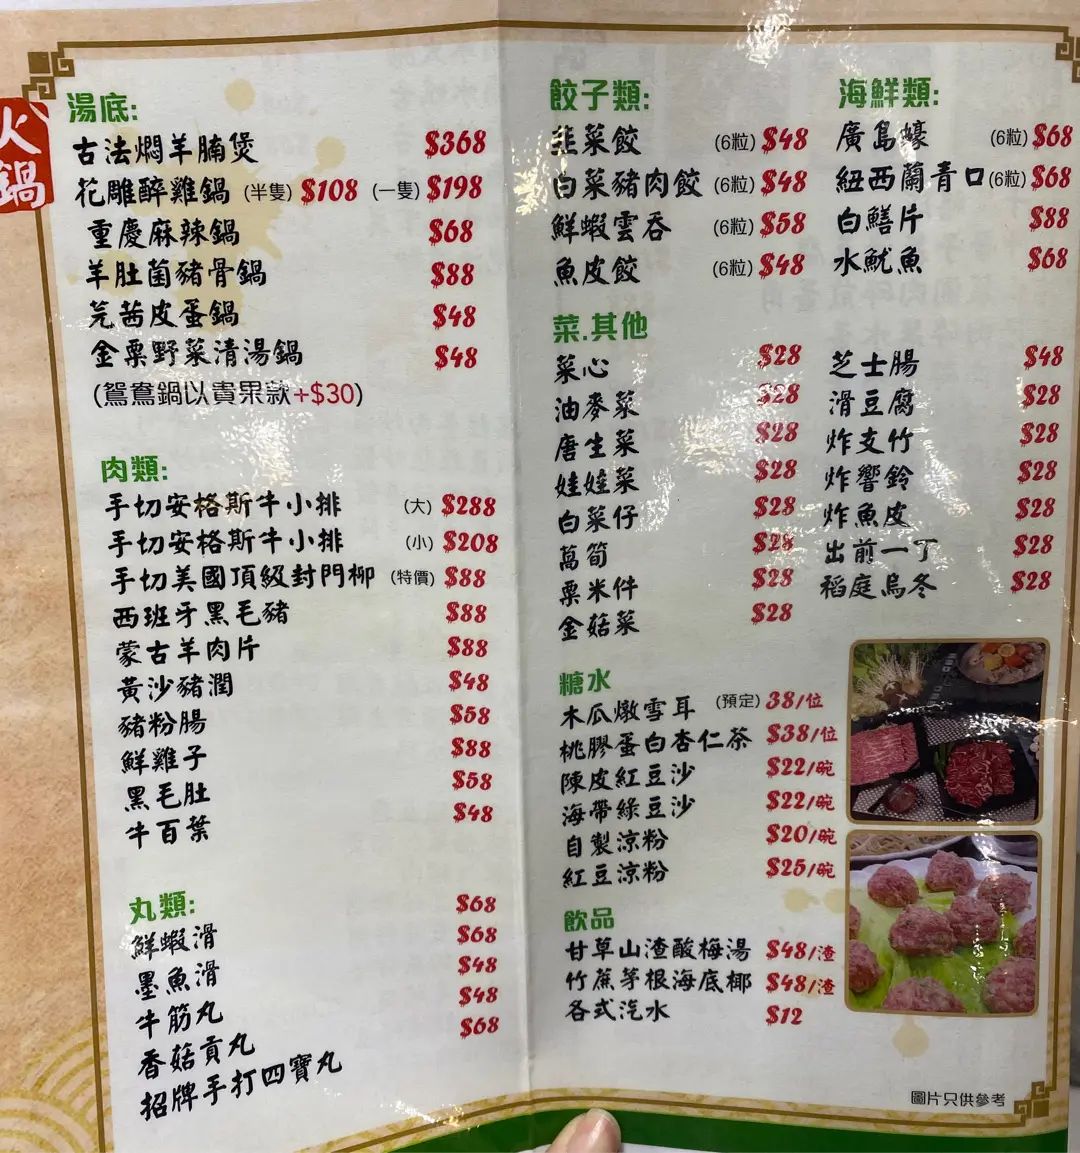 火鍋
湯底:
古法燜羊腩煲 $368
花雕醉雞鍋 (半隻) $108 (一隻) $198
重慶麻辣鍋 $68
羊肚菌豬骨鍋 $88
芫茜皮蛋鍋 $48
金粟野菜清湯鍋 $48
(鴛鴦鍋以貴果款+$30)
肉類:
手切安格斯牛小排 (大) $288
手切安格斯牛小排 (小) $208
手切美國頂級封門柳 (特價) $88
西班牙黑毛豬 $88
蒙古羊肉片 $88
黃沙豬潤 $48
豬粉腸 $58
鮮雞子 $88
黑毛肚 $58
牛百葉 $48
丸類:
鮮蝦滑 $68
墨魚滑 $68
牛筋丸 $48
香菇貢丸 $48
招牌手打四寶丸 $68
餃子類:
韭菜餃 (6粒) $48
白菜豬肉餃 (6粒) $48
鮮蝦雲吞 (6粒) $58
魚皮餃 (6粒) $48
海鮮類:
廣島蠔 (6粒) $68
紐西蘭青口 (6粒) $68
白鱔片 $88
水魷魚 $68
菜.其他
菜心 $28
油麥菜 $28
唐生菜 $28
娃娃菜 $28
白菜仔 $28
萵筍 $28
粟米件 $28
金菇菜 $28
芝士腸 $48
滑豆腐 $28
炸支竹 $28
炸響鈴 $28
炸魚皮 $28
出前一丁 $28
稻庭烏冬 $28
糖水
木瓜燉雪耳 (預定) 38/位
桃膠蛋白杏仁茶 $38/位
陳皮紅豆沙 $22/碗
海帶綠豆沙 $22/碗
自製涼粉 $20/碗
紅豆涼粉 $25/碗
飲品
甘草山渣酸梅湯 $48/渣
竹蔗茅根海底椰 $48/渣
各式汽水 $12
圖片只供參考